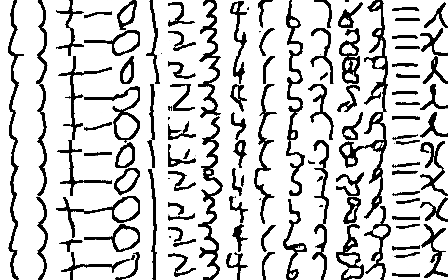 ( ) + - 0 1 2 3 4 ( 6 7 8 9 = x
( ) + - 0 1 2 3 4 ( 5 7 8 9 = x
( ) + - 0 1 2 3 4 ( 5 7 8 9 = x
( ) + - 0 1 2 3 4 ( 5 7 8 9 = x
( ) + - 0 1 2 3 4 ( 6 7 8 9 = x
( ) + - 0 1 2 3 4 ( 5 7 8 9 = x
( ) + - 0 1 2 3 4 ( 5 7 8 9 = x
( ) + - 0 1 2 3 4 ( 5 7 8 9 = x
( ) + - 0 1 2 3 4 ( 6 7 8 9 = x
( ) + - 0 1 2 3 4 ( 6 7 8 9 = x